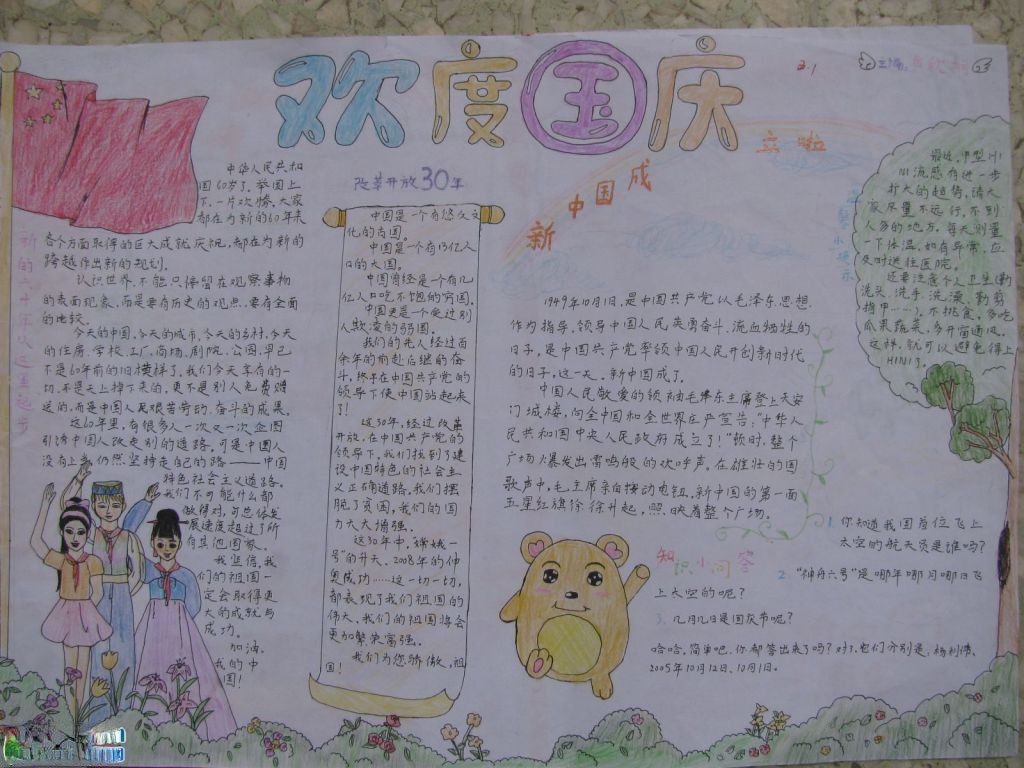 欢度国庆
3.1
主编:
中华人民共和
国60岁了,举国上
下,一片欢腾,大家
都在为新的60年来
各个方面取得的巨大成就庆祝,都在为新的
跨越作出新的规划。
认识世界,不能只停留在观察事物
的表面现象,而是要有历史的观点,要有全面
的比较。
今天的中国,今天的城市,今天的乡村,今天
的住房、学校、工厂、商场、剧院、公园,早已
不是60年前的旧模样了。我们今天享有的一
切,不是天上掉下来的,更不是别人免费赠
送的,而是中国人民艰苦劳动、奋斗的成果。
这60年里,有很多人一次又一次企图
引诱中国人改走别的道路,可是中国人
没有上当,仍然坚持走自己的路——中国
特色社会主义道路。
我们不可能什么都
做得对,可总体发
展速度超过了所
有其他国家。
我坚信,我
们的祖国一
定会取得更
大的成就与
成功。
加油,
我的中
国!
新的六十年从这里起步
改革开放30年
中国是一个有悠久文
化的古国。
中国是一个有13亿人
口的大国。
中国曾经是一个有几
亿人口吃不饱的穷国。
中国更是一个受过别
人欺凌的弱国。
我们的先人经过百
余年的前赴后继的奋
斗,终于在中国共产党的
领导下使中国站起来
了!
这30年,经过改革
开放,在中国共产党的
领导下,我们找到了建
设中国特色的社会主
义正确道路。我们摆
脱了贫困,我们的国
力大大增强。
这30年中,“嫦娥一
号”的升天、2008年的件
奥成功……这一切一切,
都表现了我们祖国的
伟大,我们的祖国将会
更加繁荣富强。
我们为您骄傲,祖
国!
新中国成立啦
1949年10月1日,是中国共产党以毛泽东思想
作为指导,领导中国人民英勇奋斗、流血牺牲的
日子,是中国共产党率领中国人民开创新时代
的日子。这一天,新中国成了。
中国人民敬爱的领袖毛泽东主席登上天安
门城楼,向全中国和全世界庄严宣告:“中华人
民共和国中央人民政府成立了!”顿时,整个
广场爆发出雷鸣般的欢呼声。在雄壮的国
歌声中,毛主席亲自按动电钮,新中国的第一面
五星红旗徐徐升起,照映着整个广场。
小提示
最近,甲型H1
N1流感有进一步
扩大的趋势,请大
家尽量不远行,不到
人多的地方。每天测量
一下体温,如有异常,应
及时送往医院。
还要注意个人卫生(勤
洗头、洗手、洗澡、勤剪
指甲……),不挑食,多吃
瓜果蔬菜,多开窗通风。
这样,就可以避免得上
H1N1了。
知识小问答
1. 你知道我国首位飞上
太空的航天员是谁吗?
2. “神舟六号”是哪年哪月哪日飞
上太空的呢?
3. 几月几日是国庆节呢?
哈哈,简单吧,你都答出来了吗?对了,它们分别是:杨利伟、
2005年10月12日、10月1日。